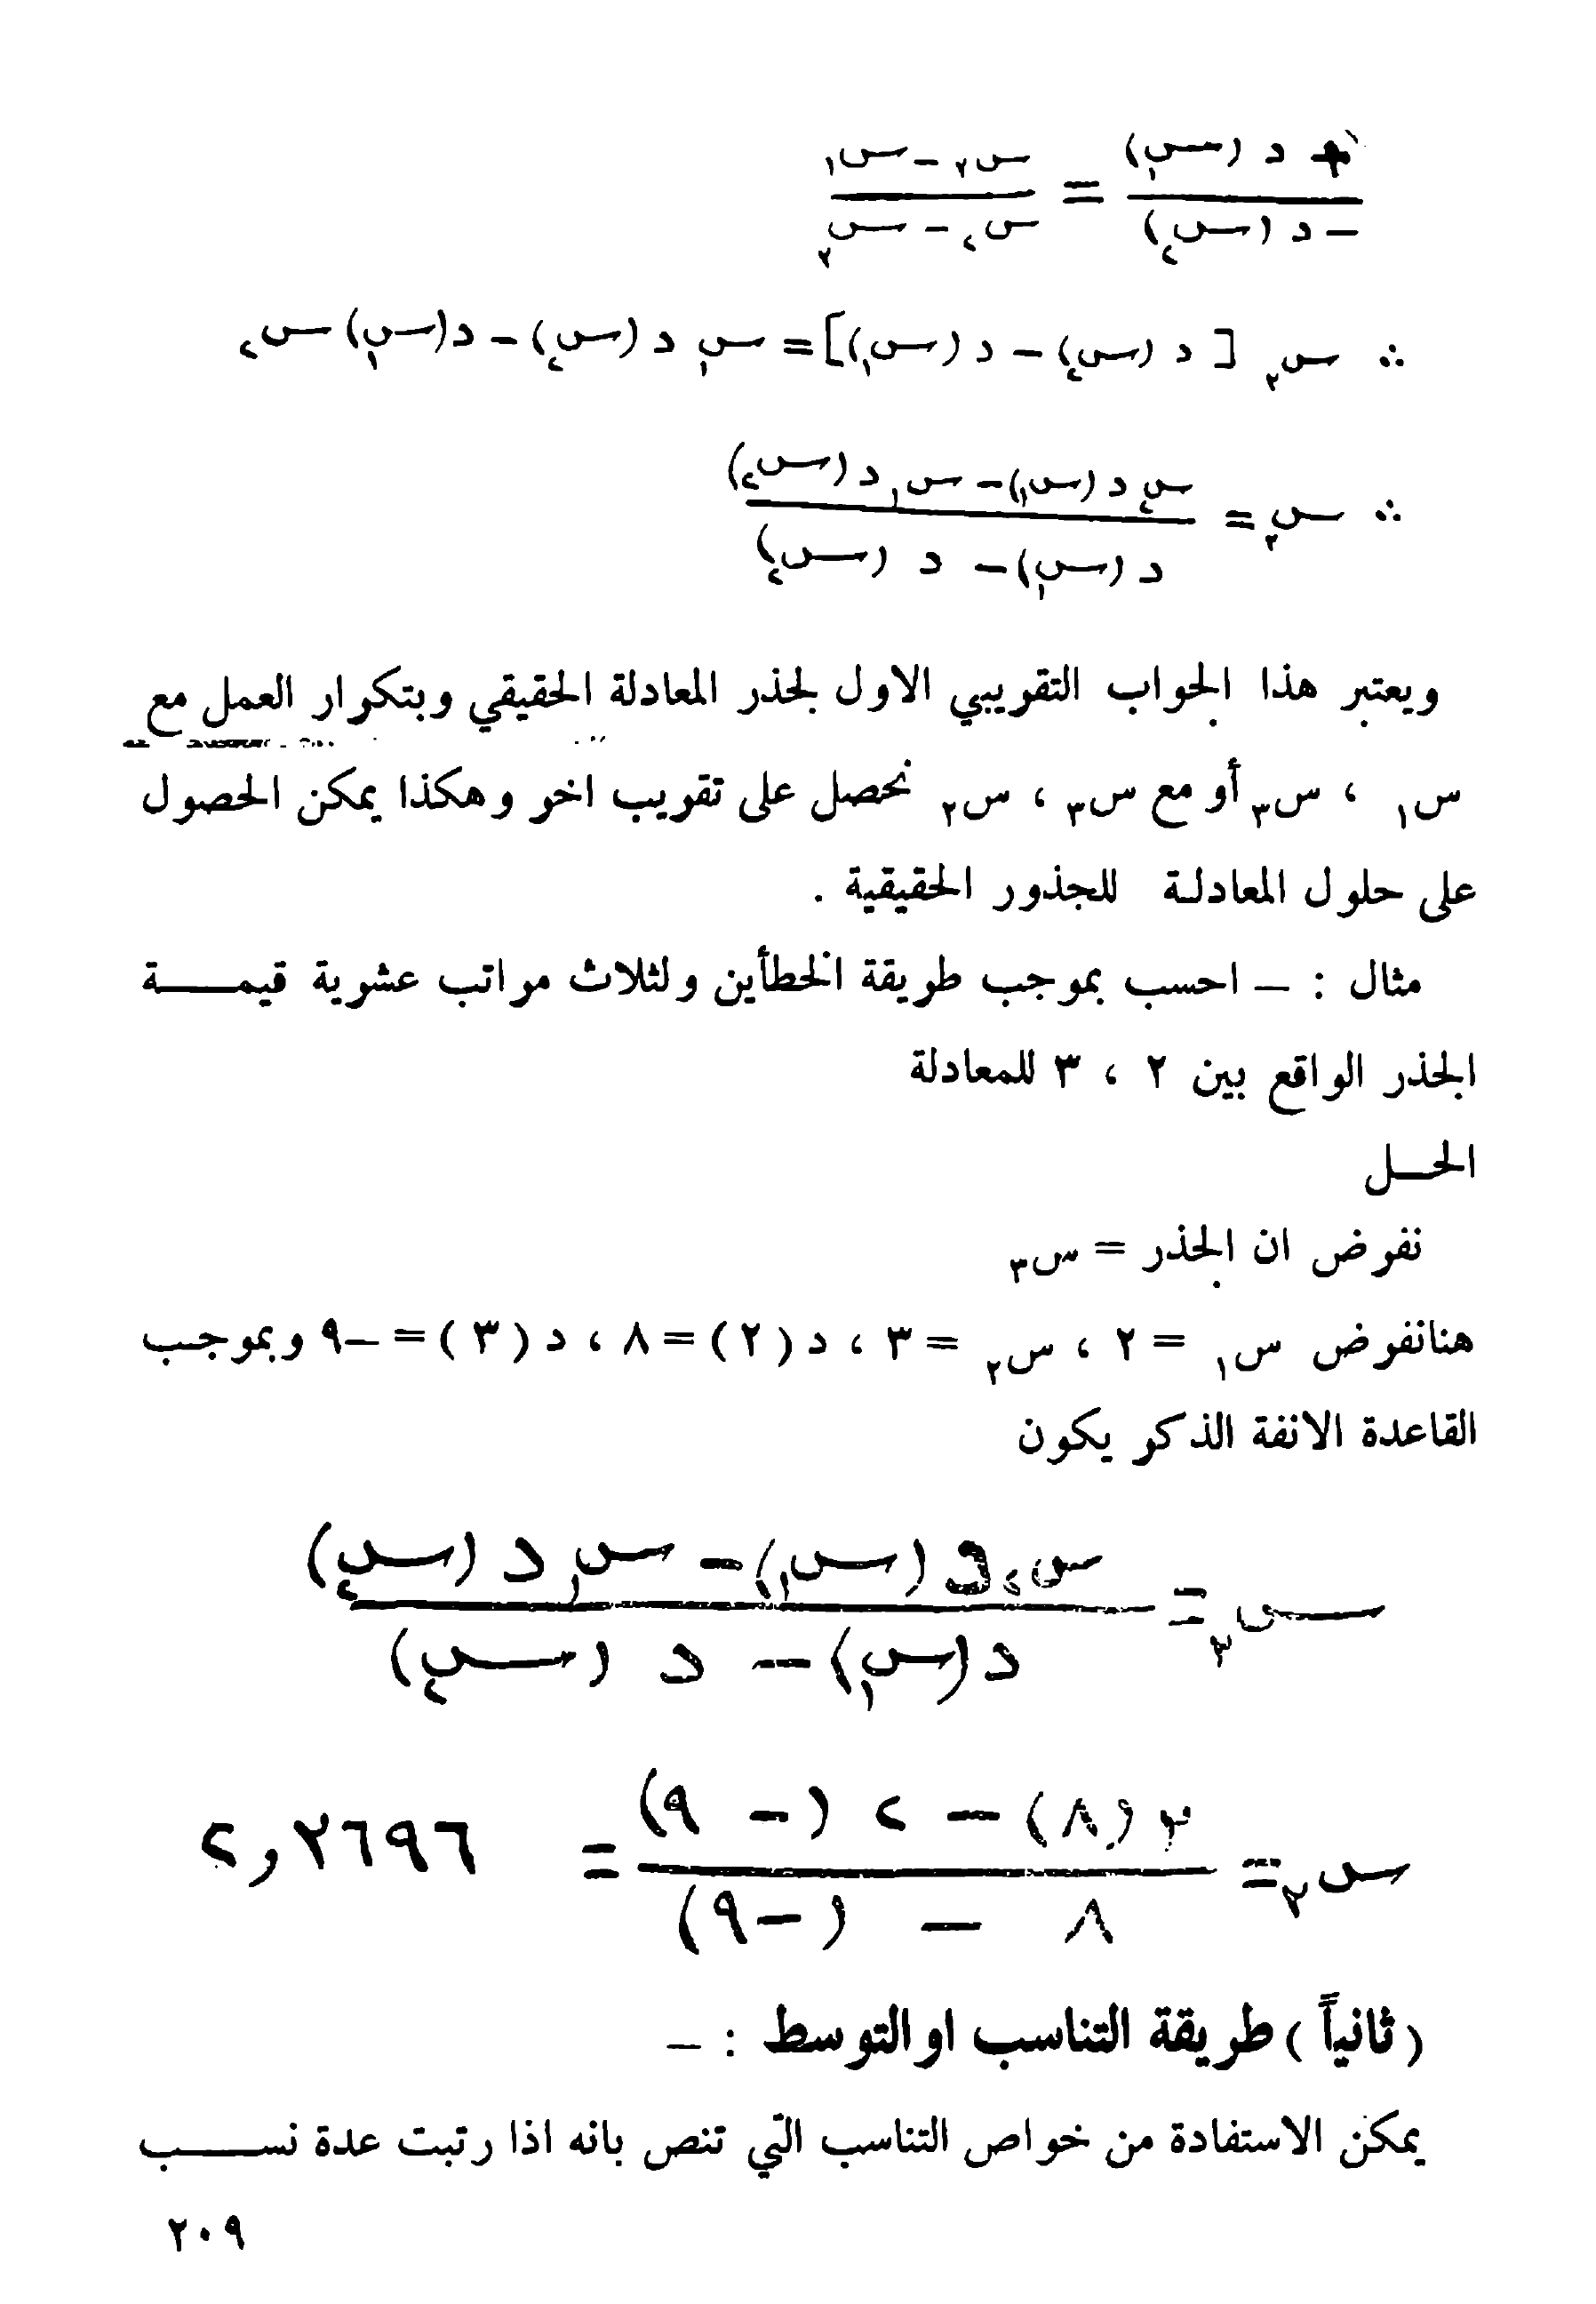 + د (س١) / - د (س٢) = س٣ - س١ / س٢ - س٣
∴ س٣ [ د (س٢) - د (س١) ] = س١ د (س٢) - د (س١) س٢
∴ س٣ = س٢ د (س١) - س١ د (س٢) / د (س١) - د (س٢)
ويعتبر هذا الجواب التقريبي الاول لجذر المعادلة الحقيقي وبتكرار العمل مع
س١ ، س٣ أو مع س٣ ، س٢ نحصل على تقريب اخر وهكذا يمكن الحصول
على حلول المعادلة للجذور الحقيقية .
مثال : — احسب بموجب طريقة الخطأين ولثلاث مراتب عشرية قيمـــة
الجذر الواقع بين ٢ ، ٣ للمعادلة
الحـل
نفرض ان الجذر = س٣
هنانفرض س١ = ٢ ، س٢ = ٣ ، د ( ٢ ) = ٨ ، د ( ٣ ) = —٩ وبموجب
القاعدة الانفة الذكر يكون
س٣ = س٢ د (س١) - س١ د (س٢) / د (س١) - د (س٢)
س٣ = ٣ (٨) - ٢ (- ٩) / ٨ - (-٩) = ٢,٢٦٩٦
( ثانياً ) طريقة التناسب او التوسط : —
يمكن الاستفادة من خواص التناسب التي تنص بانه اذا رتبت عدة نســـب
٢٠٩